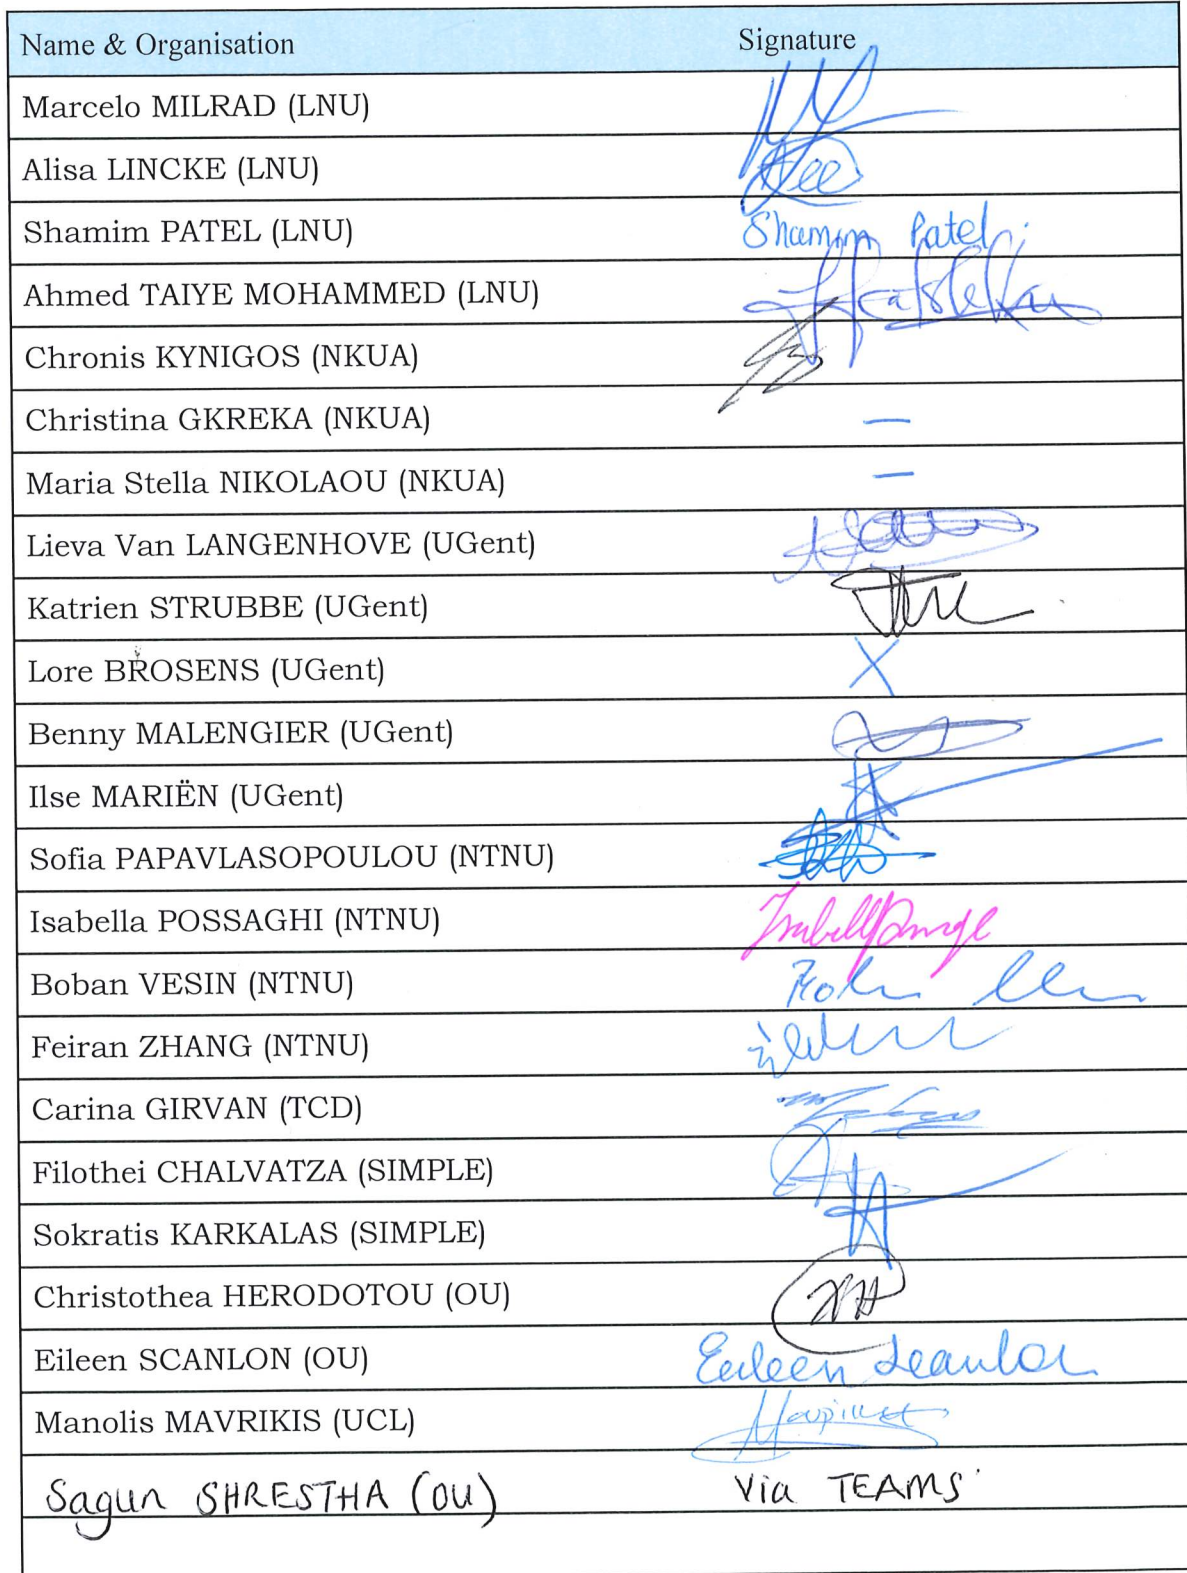 Name & Organisation Signature
Marcelo MILRAD (LNU)
Alisa LINCKE (LNU)
Shamim PATEL (LNU) Shamim Patel
Ahmed TAIYE MOHAMMED (LNU)
Chronis KYNIGOS (NKUA)
Christina GKREKA (NKUA) —
Maria Stella NIKOLAOU (NKUA) —
Lieva Van LANGENHOVE (UGent)
Katrien STRUBBE (UGent)
Lore BROSENS (UGent) X
Benny MALENGIER (UGent)
Ilse MARIËN (UGent)
Sofia PAPAVLASOPOULOU (NTNU)
Isabella POSSAGHI (NTNU)
Boban VESIN (NTNU)
Feiran ZHANG (NTNU)
Carina GIRVAN (TCD)
Filothei CHALVATZA (SIMPLE)
Sokratis KARKALAS (SIMPLE)
Christothea HERODOTOU (OU)
Eileen SCANLON (OU) Eileen Scanlon
Manolis MAVRIKIS (UCL)
Sagun SHRESTHA (OU) Via TEAMS